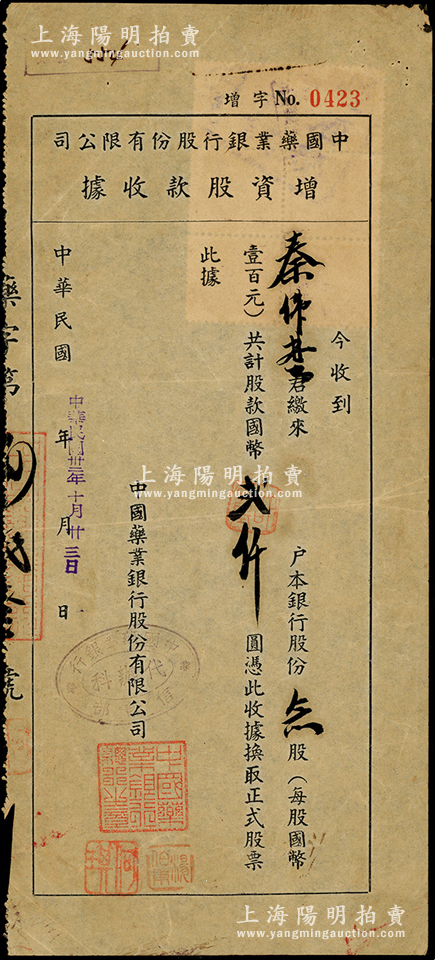 上海陽明拍賣
www.yangmingauction.com
增字 No. 0423
中國藥業銀行股份有限公司
增資股款收據
今收到
秦
君繳來
户本銀行股份
股（每股國幣
壹百元）共計股款國幣
弍仟
圓憑此收據換取正式股票
此據
中國藥業銀行股份有限公司
中華民國
年
月
日
中華民國卅二年十月廿三日
藥字第
號
上海陽明拍賣
www.yangmingauction.com
上海陽明拍賣
www.yangmingauction.com